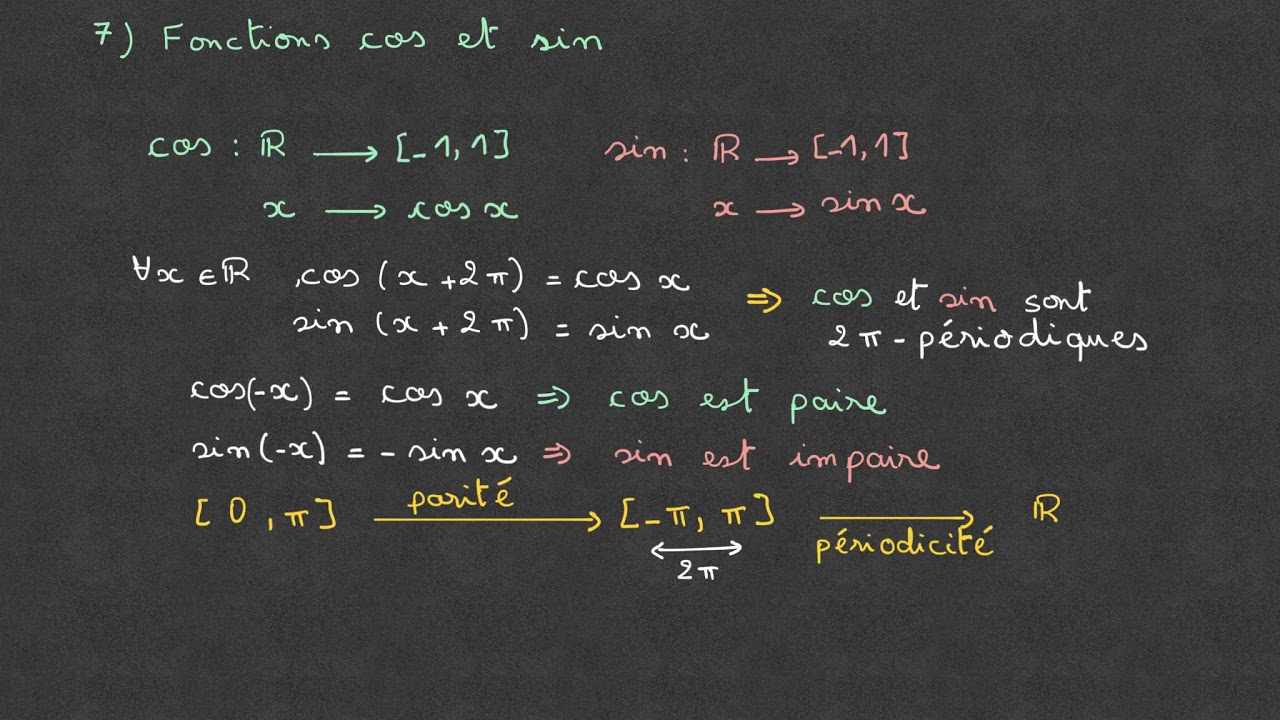 7) Fonctions cos et sin
cos : ℝ ⟶ [-1,1]
x ⟶ cos x
sin : ℝ ⟶ [-1,1]
x ⟶ sin x
∀x ∈ ℝ , cos (x + 2π) = cos x
sin (x + 2π) = sin x
⇒ cos et sin sont
2π - périodiques
cos(-x) = cos x ⇒ cos est paire
sin(-x) = - sin x ⇒ sin est impaire
[0, π] parité ⟶ [-π, π] ⟶ ℝ
périodicité
2π